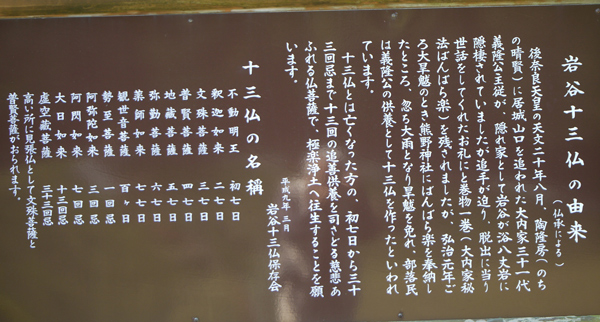 岩谷十三仏の由来
（仏承による）
後奈良天皇の天文二十年八月、陶隆房（のち
の晴賢）に居城山口を追われた大内家三十一代
義隆公主従が、隠れ家として岩谷が浴八丈岩に
隠棲されていましたが追手が迫り、脱出に当り
世話をしてくれたお礼にと巻物一巻（大内家秘
法ばんばら楽）を残されましたが、弘治元年ご
ろ大旱魃のとき熊野神社にばんばら楽を奉納し
たところ、忽ち大雨となり旱魃を免れ、部落民
は義隆公の供養として十三仏を作ったといわれ
ています。
十三仏とは亡くなった方の、初七日から三十
三回忌まで十三回の追善供養を司さどる慈悲あ
ふれる仏菩薩で、極楽浄土へ往生することを願
います。
平成九年三月
岩谷十三仏保存会
十三仏の名稱
不動明王 初七日
釈迦如来 二七日
文珠菩薩 三七日
普賢菩薩 四七日
地蔵菩薩 五七日
弥勒菩薩 六七日
薬師如来 七七日
観世音菩薩 百ヶ日
勢至菩薩 一回忌
阿弥陀如来 三回忌
阿閦如来 七回忌
大日如来 十三回忌
虚空蔵菩薩 三十三回忌
高い所に見張仏として文珠菩薩と
普賢菩薩がおられます。